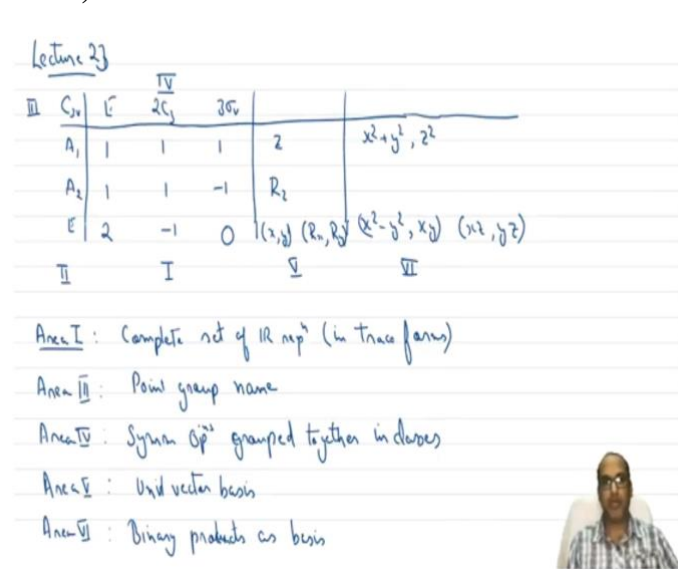 Lecture 23
IV
III C₃ᵥ E 2C₃ 3σᵥ
A₁ 1 1 1 z x²+y², z²
A₂ 1 1 -1 Rz
E 2 -1 0 (x,y) (Rx, Ry) (x²-y², xy) (xz, yz)
II I V VI
Area I : Complete set of IR repⁿ (in trace form)
Area III : Point group name
Area IV : Symm opⁿˢ grouped together in classes
Area V : Unit vector basis
Area VI : Binary products as basis